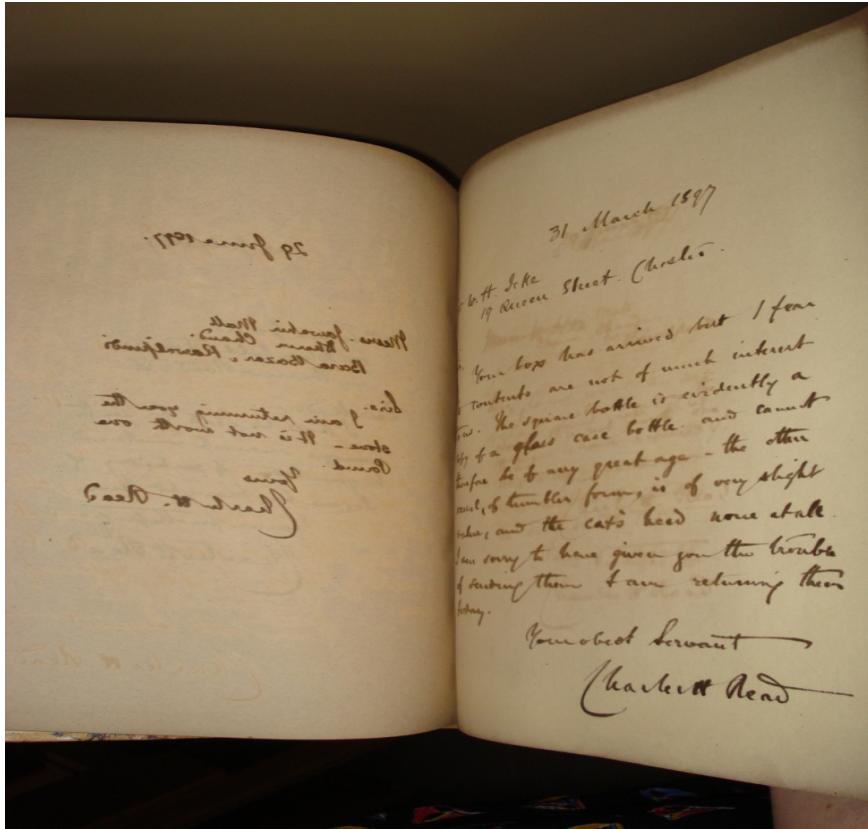 29 June 1897.
Messrs. Jawahir Mall
Chand.
Bara Bazar Rawalpindi
Sirs.
I am returning you the
stone - It is not worth one
Pound.
Yours
Charles H. Read
31 March 1897
W. H.
19 Queen Street. Chester.
Your box has arrived but I fear
contents are not of much interest
The square bottle is evidently a
of a glass case bottle and cannot
therefore be of any great age - the other
vessel, of tumbler form, is of very slight
value, and the cat's head none at all.
I am sorry to have given you the trouble
of sending them I am returning them
today.
Your obedt Servant
Charles H Read